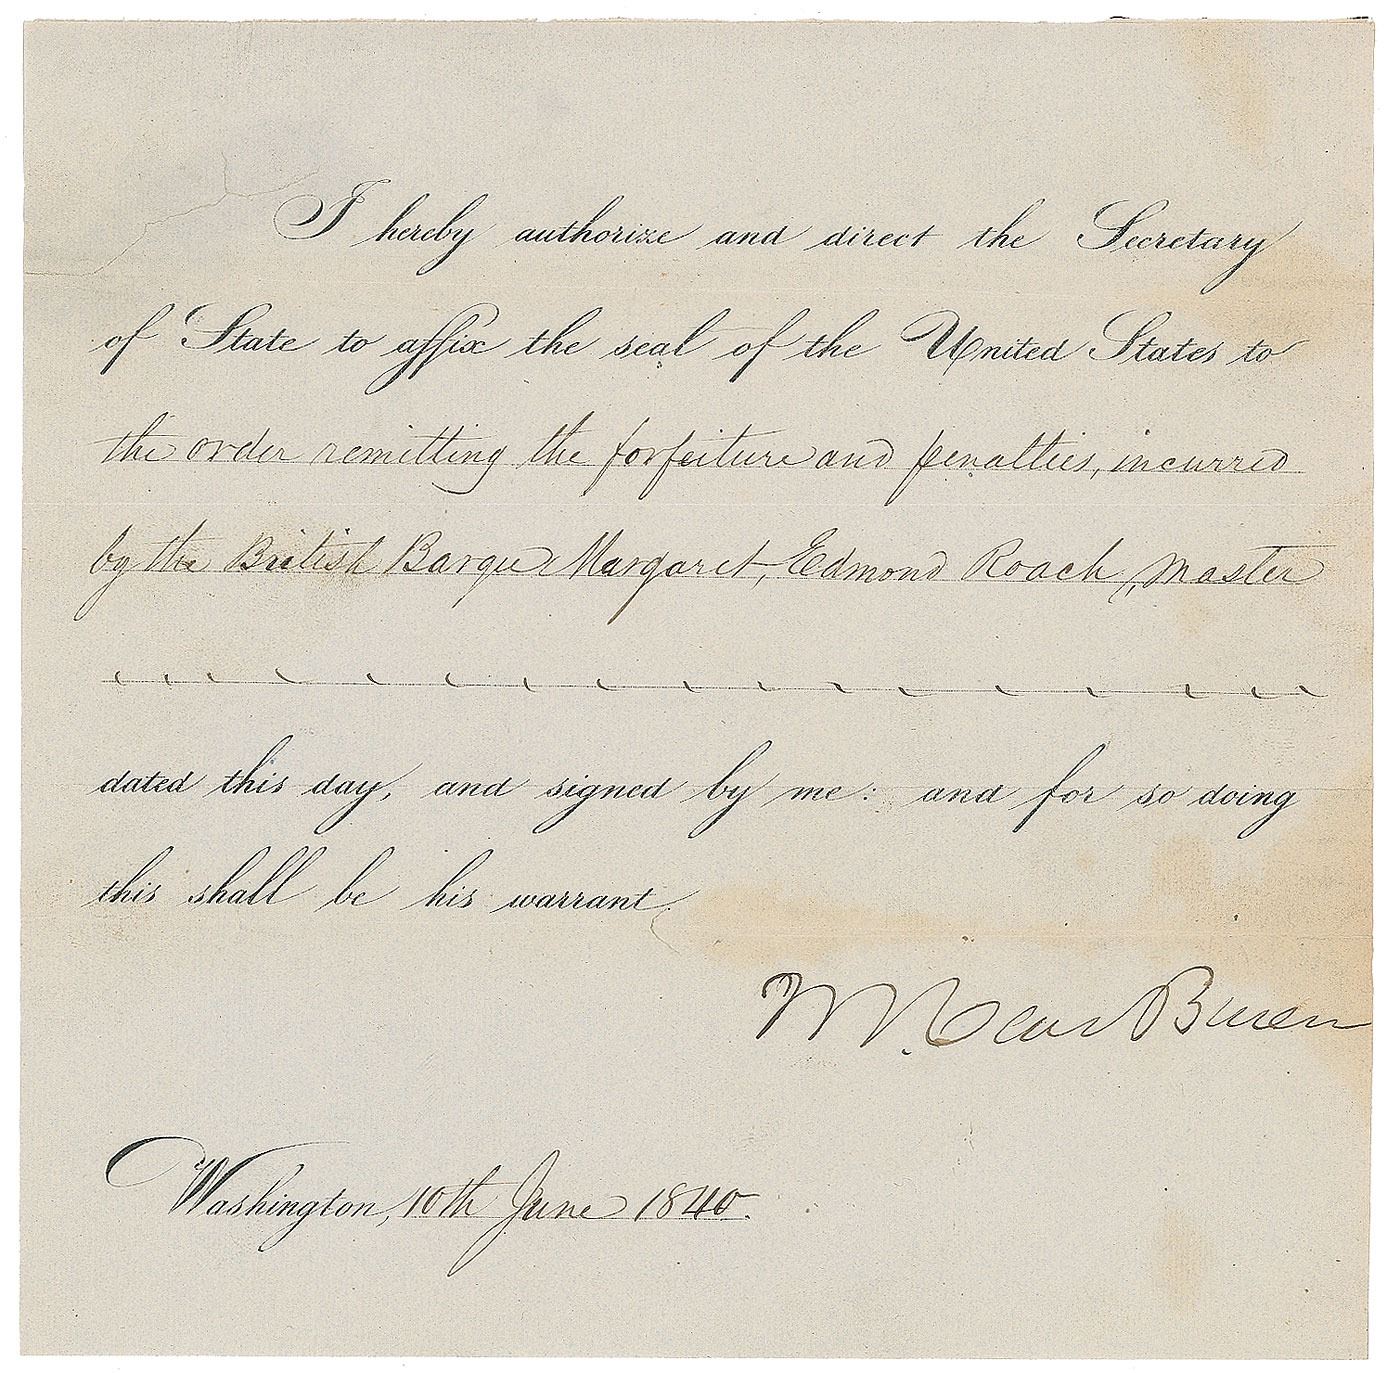 I hereby authorize and direct the Secretary
of State to affix the seal of the United States to
the order remitting the forfeiture and penalties, incurred
by the British Barque Margaret, Edmond Roach, Master
dated this day, and signed by me: and for so doing
this shall be his warrant.
M. Van Buren
Washington, 10th June 1840.